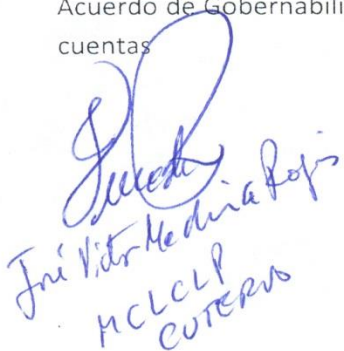 Acuerdo de Gobernabili
cuentas
José Victor Medina Rojas
MCLCLP
CUTERVO